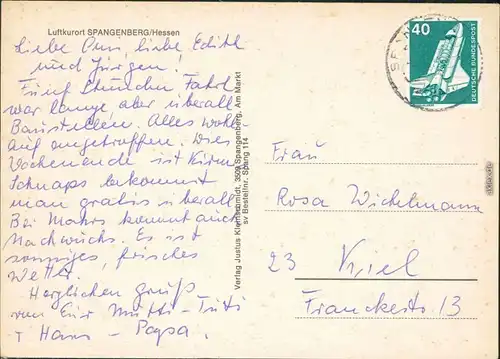 Luftkurort SPANGENBERG/Hessen
Liebe Omi, liebe Edith
und Jürgen!
Fünf Stunden Fahrt
war lange aber überall
Baustellen. Alles wohl-
auf angetroffen. Dies
Wochenende ist Kirmes
Schnaps bekommt
man gratis überall
Bei Mohrs kommt auch
Nachwuchs. Es ist
sonniges, frisches
Wetter.
Herzlichen Gruß
von Eur Mutti - Tuti
+ Hans - Papa.
Verlag Justus Kleinschmidt, 3509 Spangenberg, Am Markt
sv Bestellnr. Spang 114
40
DEUTSCHE BUNDESPOST
Frau
Rosa Wichelmann
23 Kiel
Franckestr. 13